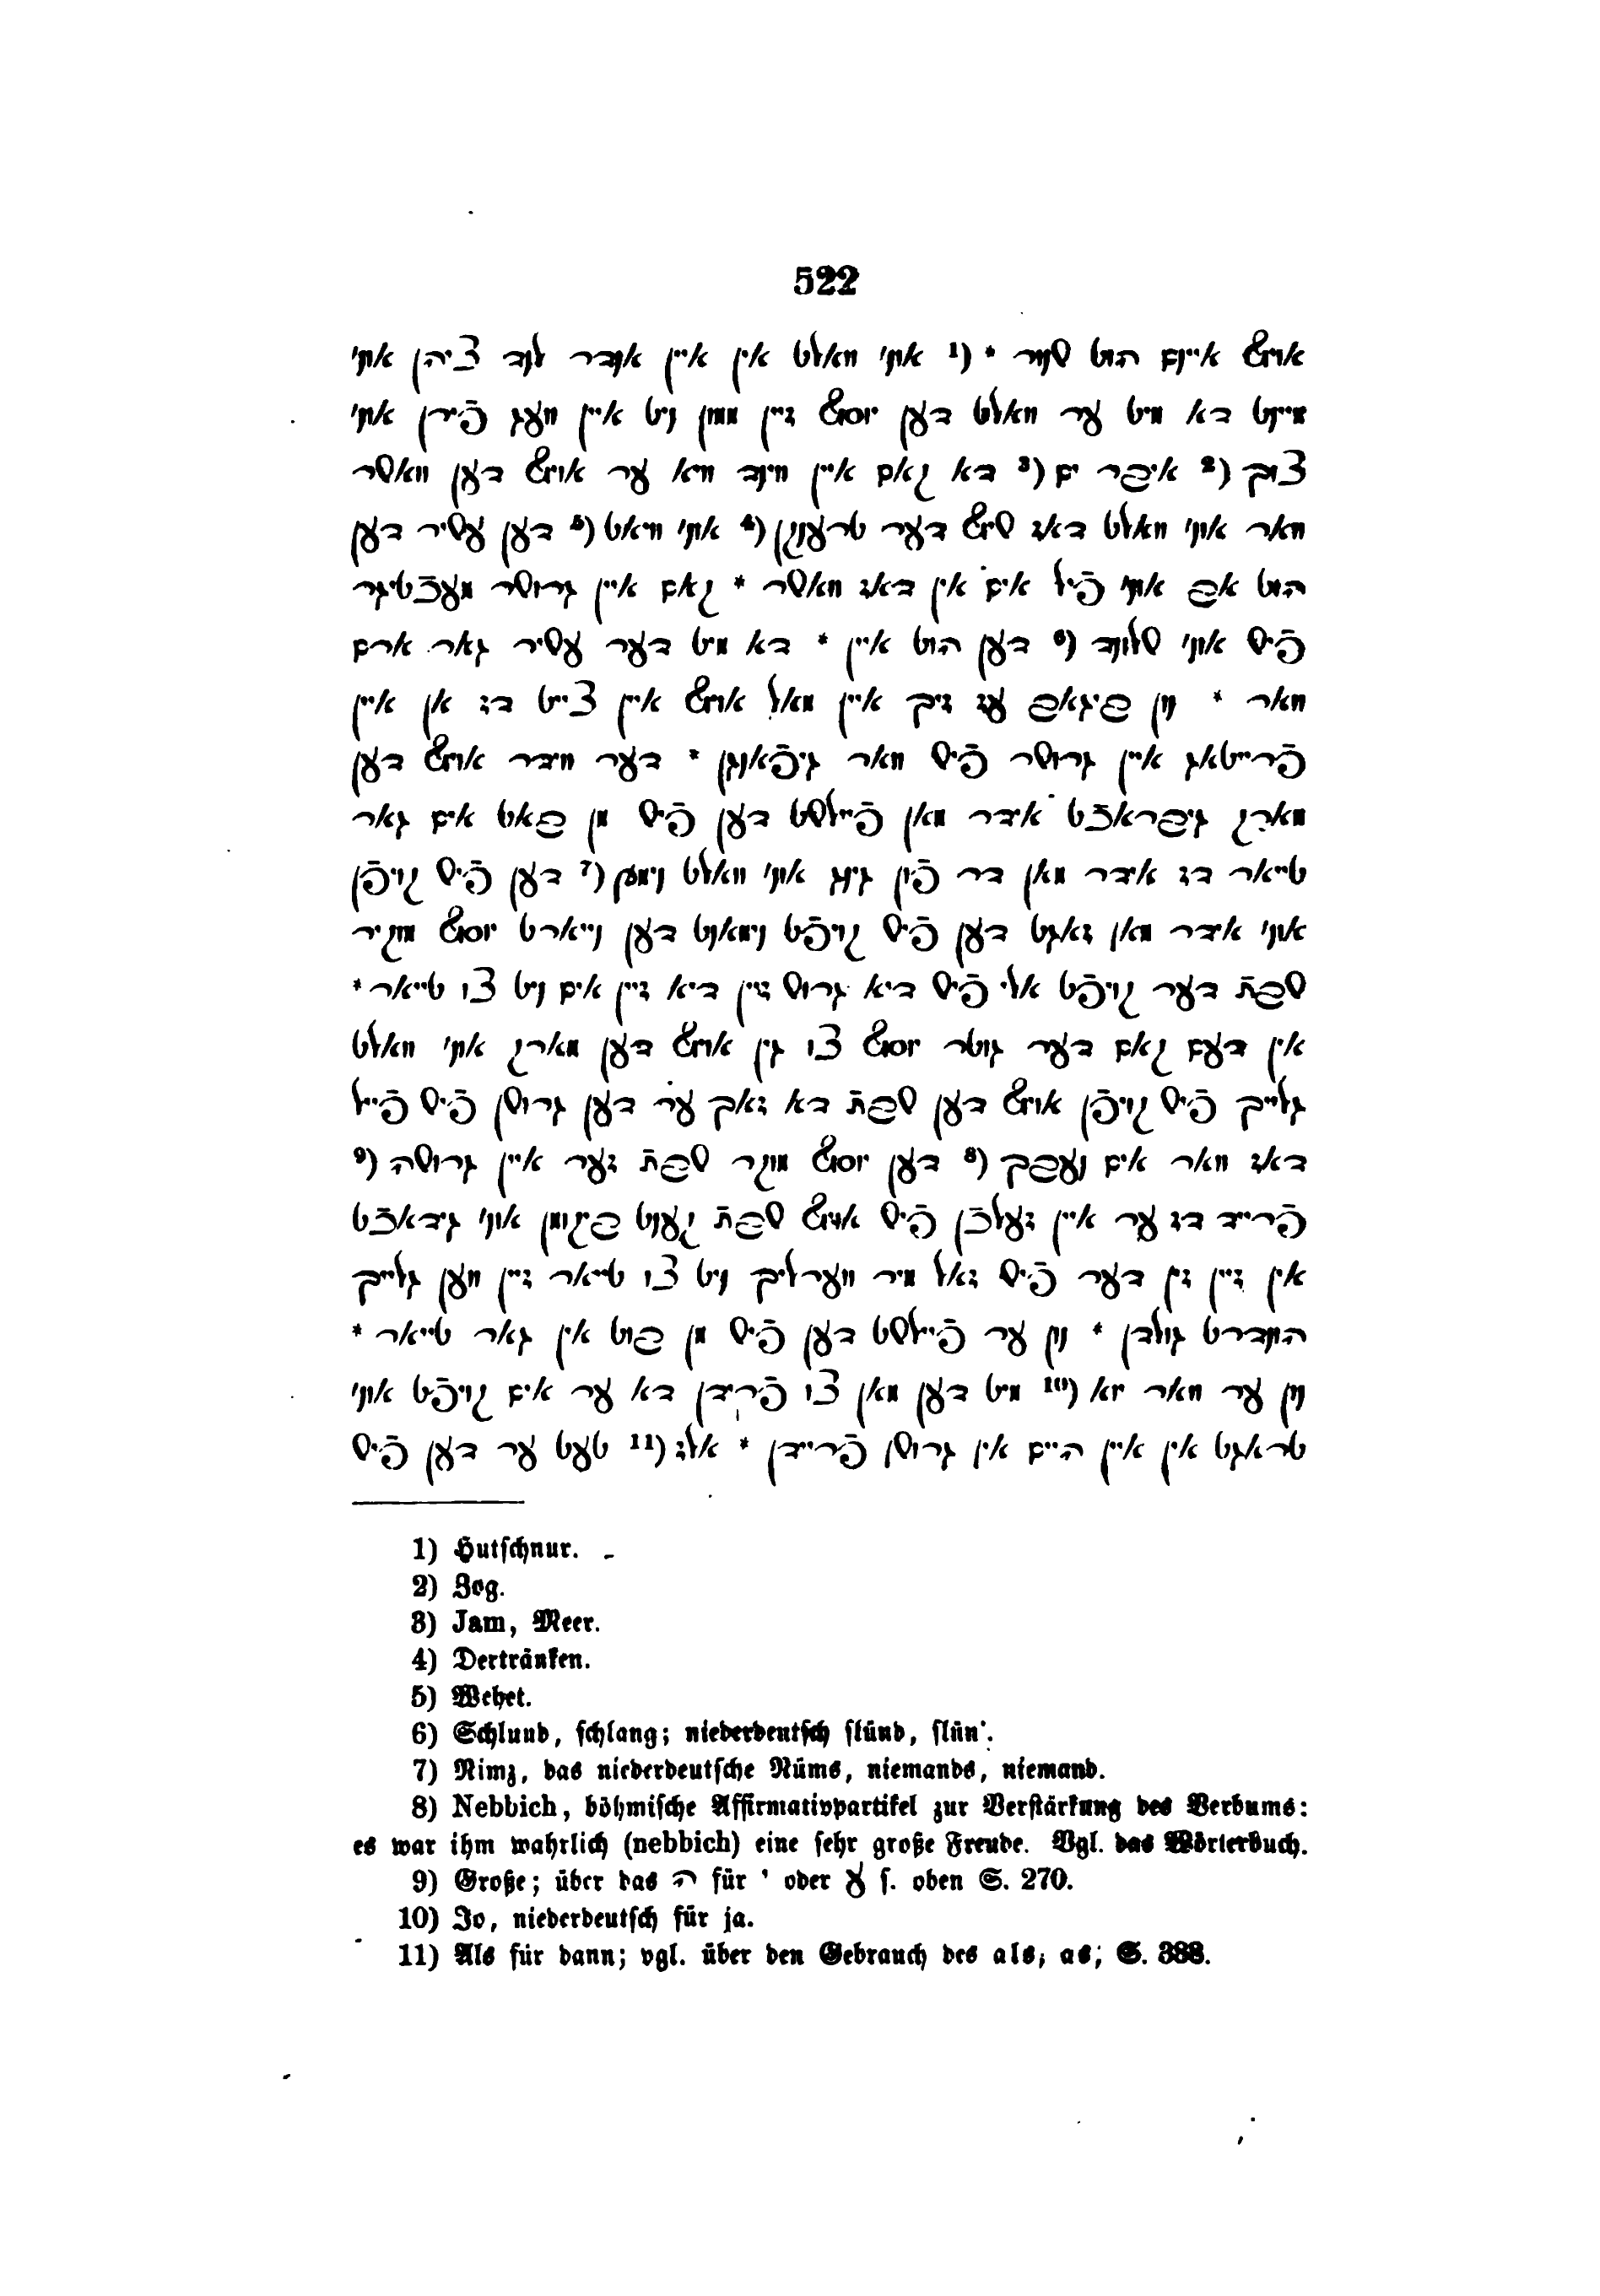 522
אויף איינם הוט שנור * (1 אוני וואלט אין איין אנדר לנד ציהן אוני
מיינט דא מיט ער וואלט דען יוסף זיין ממון ניט איין וועג פֿירן אוני
צוך (2 איבר ים (3 דא קאם איין ווינד וויא ער אויף דען וואשר
וואר אוני וואלט דאז שיף דער טרענקן (4 אוני וויאט (5 דען עשיר דען
הוט אפ אוני פֿיל אים אין דאז וואשר * קאם איין גרושר מעכֿטיגר
פֿיש אוני שלונד (6 דען הוט איין * דא מיט דער עשיר גאר ארם
וואר * נון פיגאפ עז זיך איין מאל אויף איין צייט דז אן איין
פֿרייטאג איין גרושר פֿיש וואר גיפֿאנגן * דער ווידר אויף דען
מארק גיבראכֿט אידר מאן פֿיילשט דען פֿיש מן פאט אים גאר
טייאר דז אידר מאן דר פֿון גינג אוני וואלט נימץ (7 דען פֿיש קויפֿן
אוני אידר מאן זאגט דען פֿיש קויפֿט נימאנט דען נייארט יוסף מוקיר
שבת דער קויפֿט אלי פֿיש דיא גרוש זיין דיא זיין אים ניט צו טייאר *
אין דעם קאם דער גוטר יוסף צו גין אויף דען מארק אוני וואלט
גלייך פֿיש קויפֿן אויף דען שבת דא זאך ער דען גרושן פֿיש פֿייל
דאז וואר אים נעבך (8 דען יוסף מוקר שבת זער איין גרושה (9
פֿרייד דז ער איין זעלכֿן פֿיש אויף שבת קענט פיקומן אוני גידאכֿט
אין זיין זין דער פֿיש זאל מיר ווערליך ניט צו טייאר זיין ווען גלייך
הונדרט גולדן * נון ער פֿיילשט דען פֿיש מן פוט אין גאר טייאר *
נון ער וואר יוא (10 מיט דען מאן צו פֿרידן דא ער אים קויפֿט אוני
טראגט אין איין היים אין גרושן פֿריידן * אלז (11 טעט ער דען פֿיש
1) Hutschnur.
2) Zog.
3) Jam, Meer.
4) Dertränken.
5) Wehet.
6) Schlund, schlang; niederdeutsch slünd, slün'.
7) Nimz, das niederdeutsche Nüms, niemands, niemand.
8) Nebbich, böhmische Affirmativpartikel zur Verstärkung des Verbums:
es war ihm wahrlich (nebbich) eine sehr große Freude. Vgl. das Wörterbuch.
9) Große; über das ה für י oder ע s. oben S. 270.
10) Jo, niederdeutsch für ja.
11) Als für dann; vgl. über den Gebrauch des als, as, S. 388.